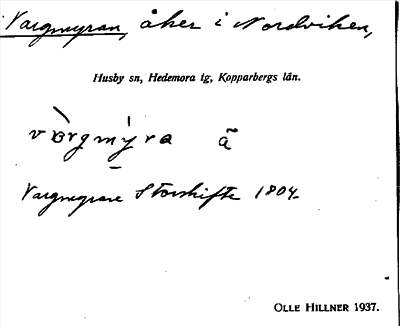 Vargmyran, åker i Nordviken,
Husby sn, Hedemora tg, Kopparbergs län.
vàrgmýra ã
Vargmyran Storskifte 1804.
OLLE HILLNER 1937.